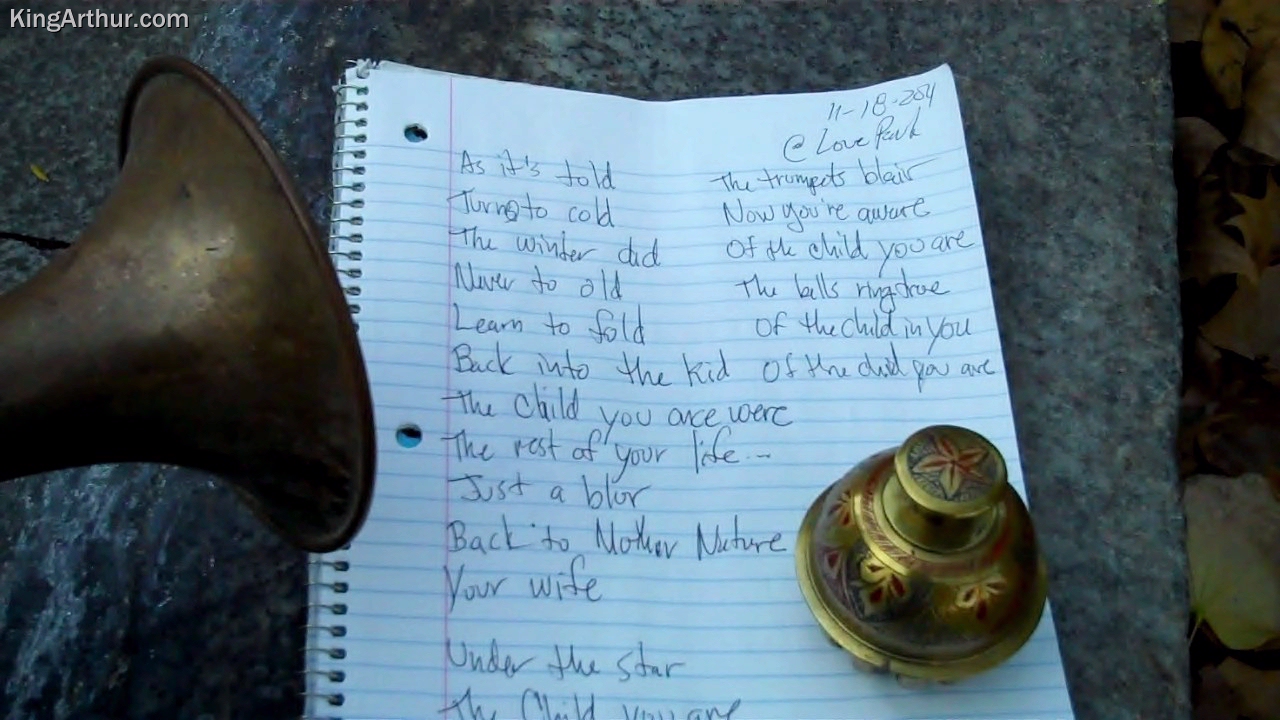 KingArthur.com
11-18-2014
@ Love Park
As it's told
Turns to cold
The winter did
Never to old
Learn to fold
Back into the kid
The child you are were
The rest of your life...
Just a blur
Back to Mother Nature
Your wife
Under the star
The Child you are
The trumpets blair
Now you're aware
Of the child you are
The bells ring true
Of the child in you
Of the child you are